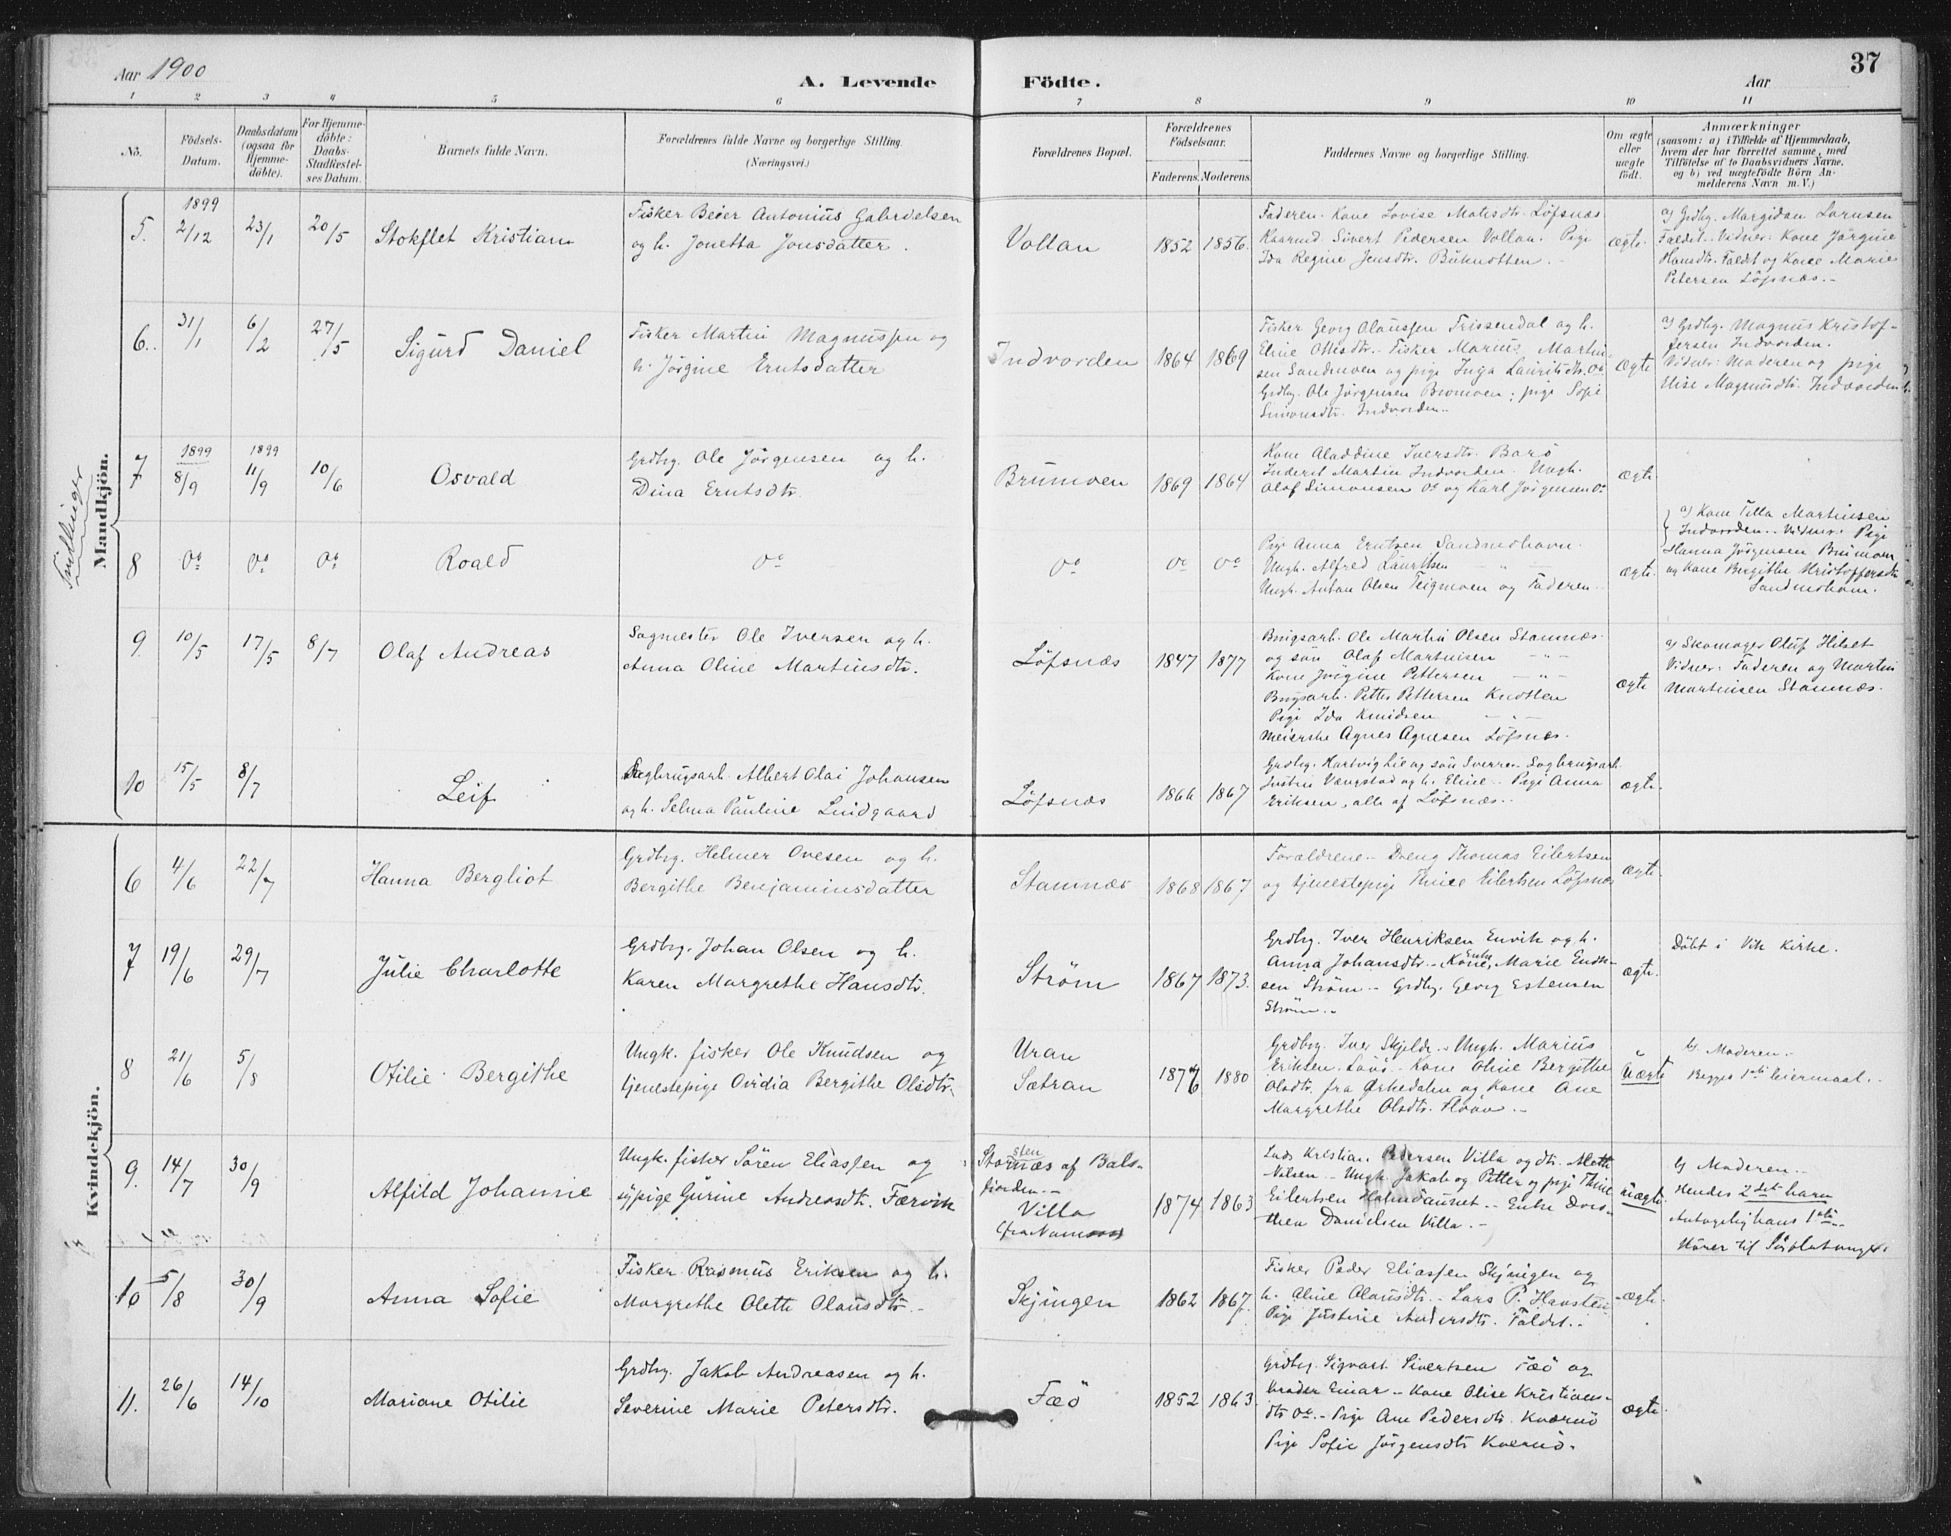 Aar 1900
A. Levende
Födte.
Aar
37
1 2 3 4 5 6 7 8 9 10 11
No.
Födsels-Datum.
Daabsdatum (ogsaa for Hjemme-döbte).
For Hjemme-döbte: Daabs-Stadfæstel-ses Datum.
Barnets fulde Navn.
Forældrenes fulde Navne og borgerlige Stilling.
(Næringsvei.)
Forældrenes Bopæl.
Forældrenes Födselsaar.
Faderens. Moderens.
Faddernes Navne og borgerlige Stilling.
Om ægte eller uægte født.
Anmærkninger
(saasom: a) i Tilfælde af Hjemmedaab,
hvem der har forrettet samme, med
Tilföielse af to Daabsvidners Navne.
og b) ved uægtefödte Börn An-
melderens Navn m. V.)
Mandkjön.
Tvillinger
5. 1899 2/12 23/1 20/5
Stokflet Kristian
Fisker Beier Antonius Gabrielsen
og h. Jonetta Jonsdatter.
Vollan 1852 1856.
Faderen. Kone Lovise Matisdtr. Löfsnæs
Kaarmd. Sivert Pedersen Vollan. Pige
Ida Regine Jensdtr.
ægte.
a) Grdbg. Margidan Larnsen
Faldet. Vidner: Kone Jörgine
Hansdtr. Faldet og Kone Marie
Petersen Löfsnæs.
6. 31/1 6/2 27/5
Sigurd Daniel
Fisker Martin Magnussen og
h. Jörgine Erntsdatter
Indvorden 1864 1869
Fisker Georg Olaussen Frissendal og h.
Eline Ottesdtr. Fisker Marius Martin-
sen Sandmoen og pige Inga Lauritsdtr. Do
Grdbg. Ole Jörgensen Bromoen; pige Sofie
Simonsdtr. Indvorden
ægte
a) Grdbg. Magnus Kristof-
fersen Indvorden.
Vidner: Moderen og pige
Elise Magnusdtr. Indvorden
7 1899 8/9 1899 11/9 10/6
Osvald
Grdbg. Ole Jörgensen og h.
Dina Erntsdtr.
Brumoen 1869 1864
Kone Aladdine Iversdtr. Barö
Inderst Martin Indvorden. Ungk.
Olaf Simonsen Do og Karl Jörgensen Do
ægte.
8 Do Do Do
Roald
Do
Do Do Do
Pige Anna Erntsen Sandneshavn.
Ungk. Alfred Lauritsen " "
Ungk. Anton Olsen Teigmoen og Faderen.
ægte.
a) Kone Tilla Martinsen
Indvorden. Vidner: Pige
Hanna Jörgensen Brumoen
og Kone Bergithe Kristoffersdtr
Sandneshavn.
9. 10/5 17/5 8/7
Olaf Andreas
Sagmester Ole Iversen og h.
Anna Oline Martinsdtr.
Löfsnæs 1847 1877
Brugsarb. Ole Martin Olsen Stamnæs.
og sön Olaf Martinsen " "
Kone Jörgine Pettersen " "
Brugsarb. Petter Pettersen Knotten
Pige Ida Knudsen " "
Meierske Agnes Agnesen Löfsnæs.
ægte
a) Skomager Oluf Hilset
Vidner: Faderen og Martin
Martinsen Stamnæs.
10 15/5 8/7
Leif
Sagbrugsarb. Albert Olai Johansen
og h. Selma Pauline Lindgaard
Löfsnæs 1866 1867
Grdbg. Hartvig Lie og sön Sverre. Sagbrugsarb.
Justin Vangstad og h. Eline. Pige Anna
Eriksen, alle af Löfsnæs.
ægte.
Kvindekjön.
6 4/6 22/7
Hanna Bergliot
Grdbg. Helmer Ovesen og h.
Bergithe Benjaminsdatter
Stamnæs 1868 1867
Forældrene. Dreng Thomas Eilertsen
og tjenestepige Thine Eilertsen Löfsnæs
ægte.
7 19/6 29/7
Julie Charlotte
Grdbg. Johan Olsen og h.
Karen Margrethe Hansdtr.
Ström 1867 1873.
Grdbg. Iver Henriksen Envik og h.
Anna Johansdtr. Kone Enke Marie Endre-
sen Ström. Grdbg. Georg Estensen
Ström.
ægte.
Döbt i Vik Kirke.
8 21/6 5/8
Otilie Bergithe
Ungk. fisker Ole Knudsen og
tjenestepige Ovidia Bergithe Olsdtr.
Uran
Sætran 1876 1880
Grdbg. Iver Skjeldr. Ungk. Marius
Eriksen. Kone Oline Bergithe
Olsdtr. fra Ørkedalen og Kone Ane
Margrethe Olsdtr.
Uægte
b) Moderen.
Begges 1ste leiermaal.
9. 14/7 30/9
Alfild Johanne
Ungk. fisker Sören Eliassen og
sypige Gurine Andreasdtr. Færvik
Storstennæs af Bals-
fjorden.
Villa
(fra Namsos) 1874 1863
Inds. Kristian Pedersen Villa og dtr. Alette
Nilsen. Ungk. Jakob og Petter og pige Thine
Eilertsen Holmdaunet. Enke Doro-
thea Danielsen Villa.
uægte
b) Moderen.
Hendes 2det barn
Antagelig hans 1ste.
10 5/8 30/9
Anna Sofie
Fisker Rasmus Eriksen og h.
Margrethe Olette Olausdtr.
Skjingen 1862 1867.
Fisker Peder Eliassen Skjingen og
h. Aline Olausdtr. Lars P. Hansten
Pige Justine Andersdtr. Faldet.
ægte.
11. 26/6 14/10
Mariane Otilie
Grdbg. Jakob Andreasen og h.
Severine Marie Petersdtr.
Fæö 1852 1863.
Grdbg. Sigvart Sivertsen Fæö og
broder Einar. Kone Olise Kristians-
dtr. Do. Pige Ane Pedersdtr. Kværnö
Pige Sofie Jörgensdtr Kvernö.
ægte.